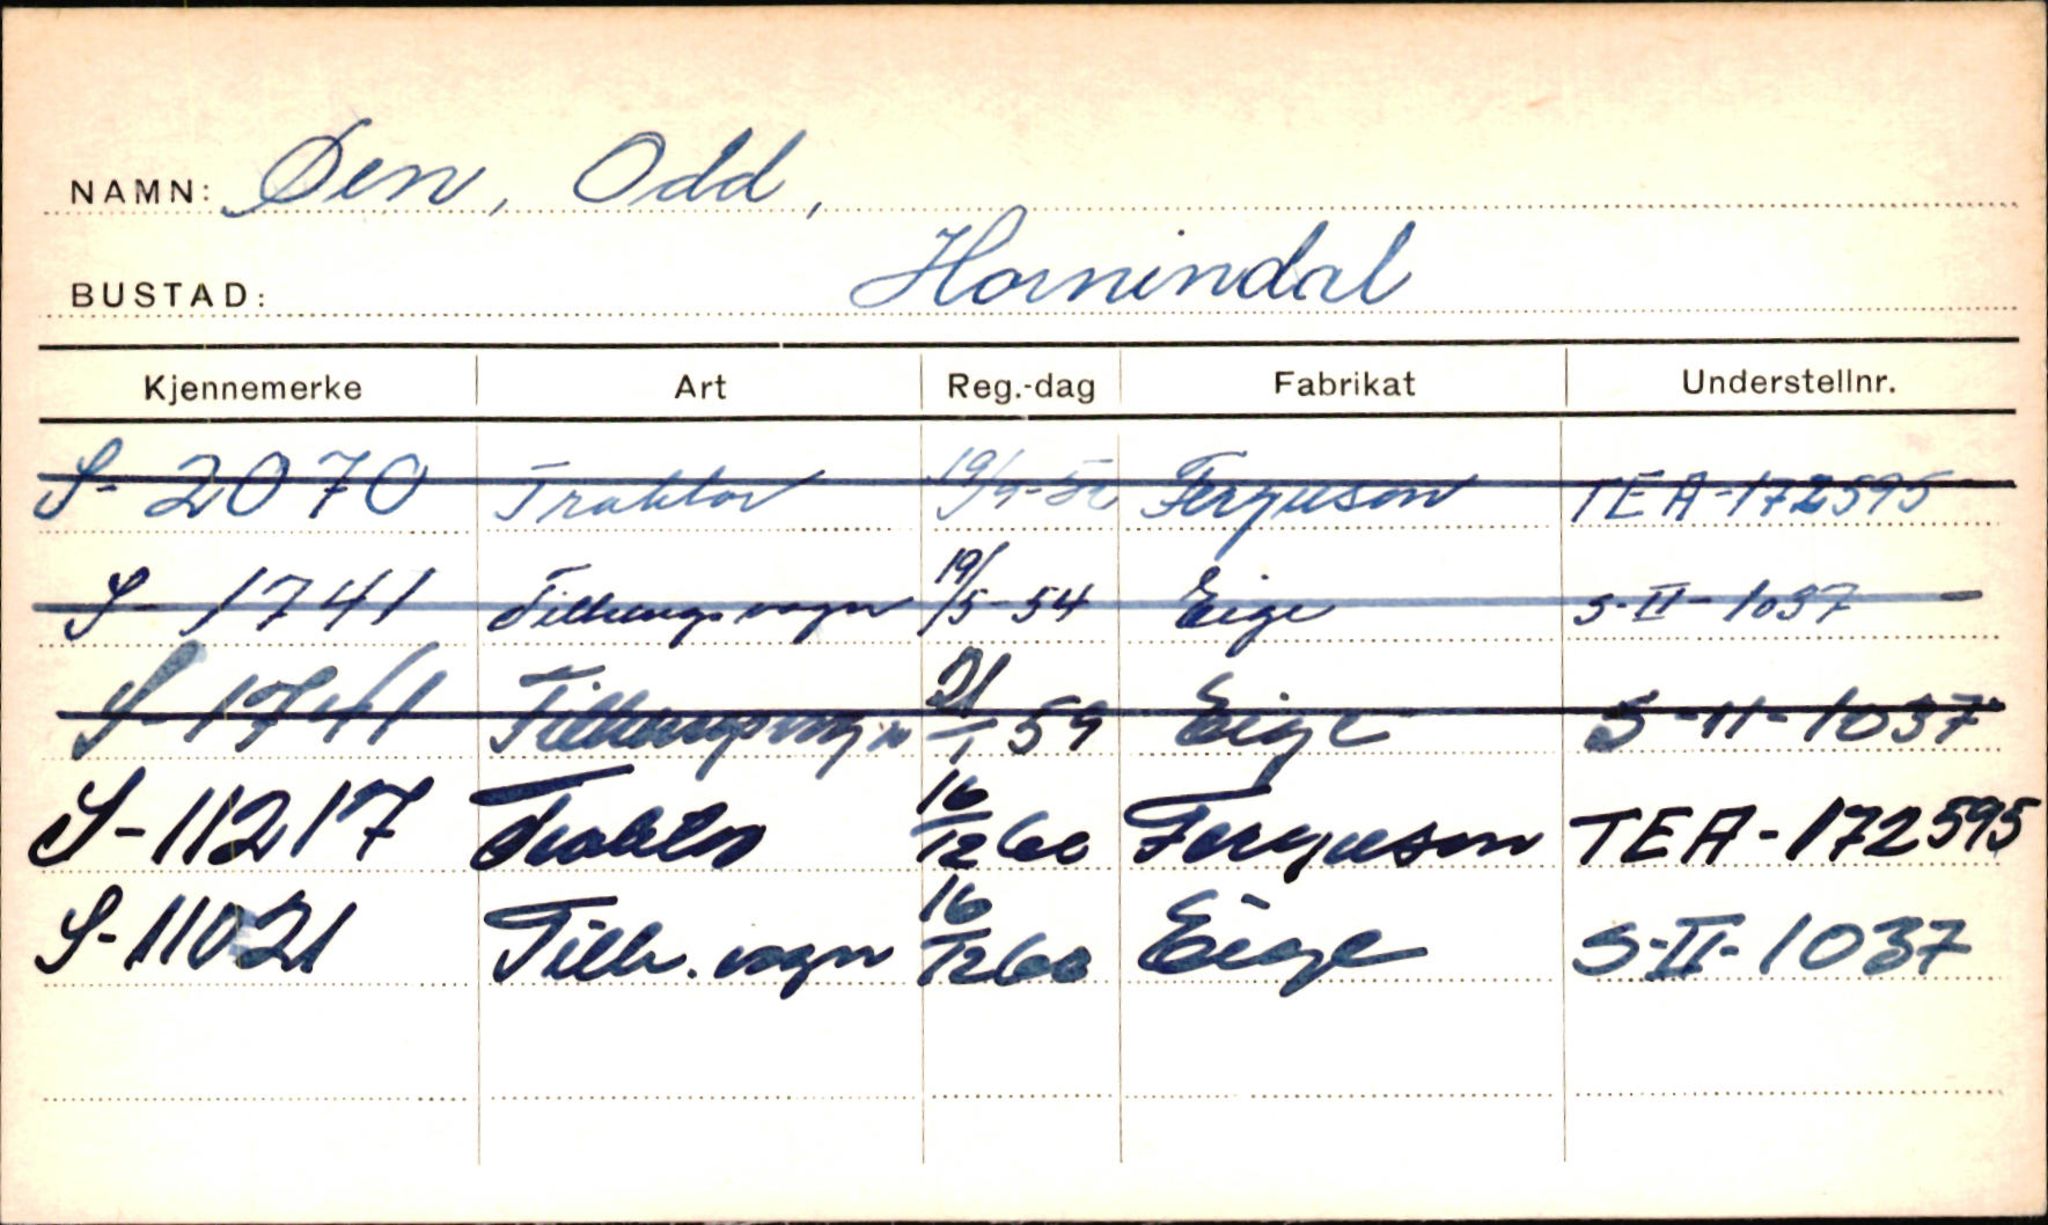 NAMN: Øen, Odd,
BUSTAD: Hornindal
Kjennemerke Art Reg.-dag Fabrikat Understellnr.
S- 2070 Traktor Ferguson TEA-172595
S- 1741 Tilhengsvogn 19/5-54 Eige S-II-1037
S- 1741 Tilhengsvogn 21/1 59 Eige S-II-1037
S-11217 Traktor 16/12 60 Ferguson TEA-172595
S-11021 Tilh. vogn 16/12 60 Eige S-II-1037